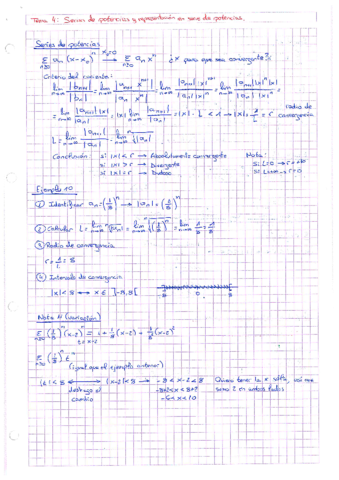 Tema 4: Series de potencias y representación en serie de potencias.
Series de potencias
Σ n≥0 aₙ (x-x₀)ⁿ x₀=0 → Σ n≥0 aₙ xⁿ ¿x para que sea convergente?
Criterio del cociente:
lim n→∞ |bₙ₊₁|/|bₙ| = lim n→∞ |aₙ₊₁ xⁿ⁺¹|/|aₙ xⁿ| = lim n→∞ |aₙ₊₁||x|ⁿ⁺¹/|aₙ||x|ⁿ = lim n→∞ |aₙ₊₁||x|ⁿ|x|/|aₙ||x|ⁿ =
= lim n→∞ |x||aₙ₊₁|/|aₙ| = |x| lim n→∞ |aₙ₊₁|/|aₙ| = |x| · L < 1 → |x| < 1/L = r radio de convergencia
L = lim n→∞ |aₙ₊₁|/|aₙ| = lim n→∞ ⁿ√|aₙ|
Conclusión si |x| < r → Absolutamente convergente Nota:
si |x| > r → Divergente Si L=0 → r=∞
si |x| = r → Dudoso Si L=∞ → r=0
Ejemplo 10
① Identificar aₙ = (1/8)ⁿ → |aₙ| = (1/8)ⁿ
② Calcular L = lim n→∞ ⁿ√|aₙ| = lim n→∞ ⁿ√(1/8)ⁿ = lim n→∞ 1/8 = 1/8
③ Radio de convergencia
r = 1/L = 8
④ Intervalo de convergencia
|x| < 8 ↔ x ∈ ]-8,8[
-8 0 8
Nota 11 (variación)
Σ n≥0 (1/8)ⁿ (x-2)ⁿ = 1 + 1/8 (x-2) + 1/8 (x-2)²
t = x-2
Σ n≥0 (1/8)ⁿ tⁿ
(igual que el ejemplo anterior)
|t| < 8 ↔ |x-2| < 8 → -8 < x-2 < 8 Quiero tener la x sola,
deshago el -8+2 < x < 8+2 sumo 2 en ambos lados
cambio -6 < x < 10